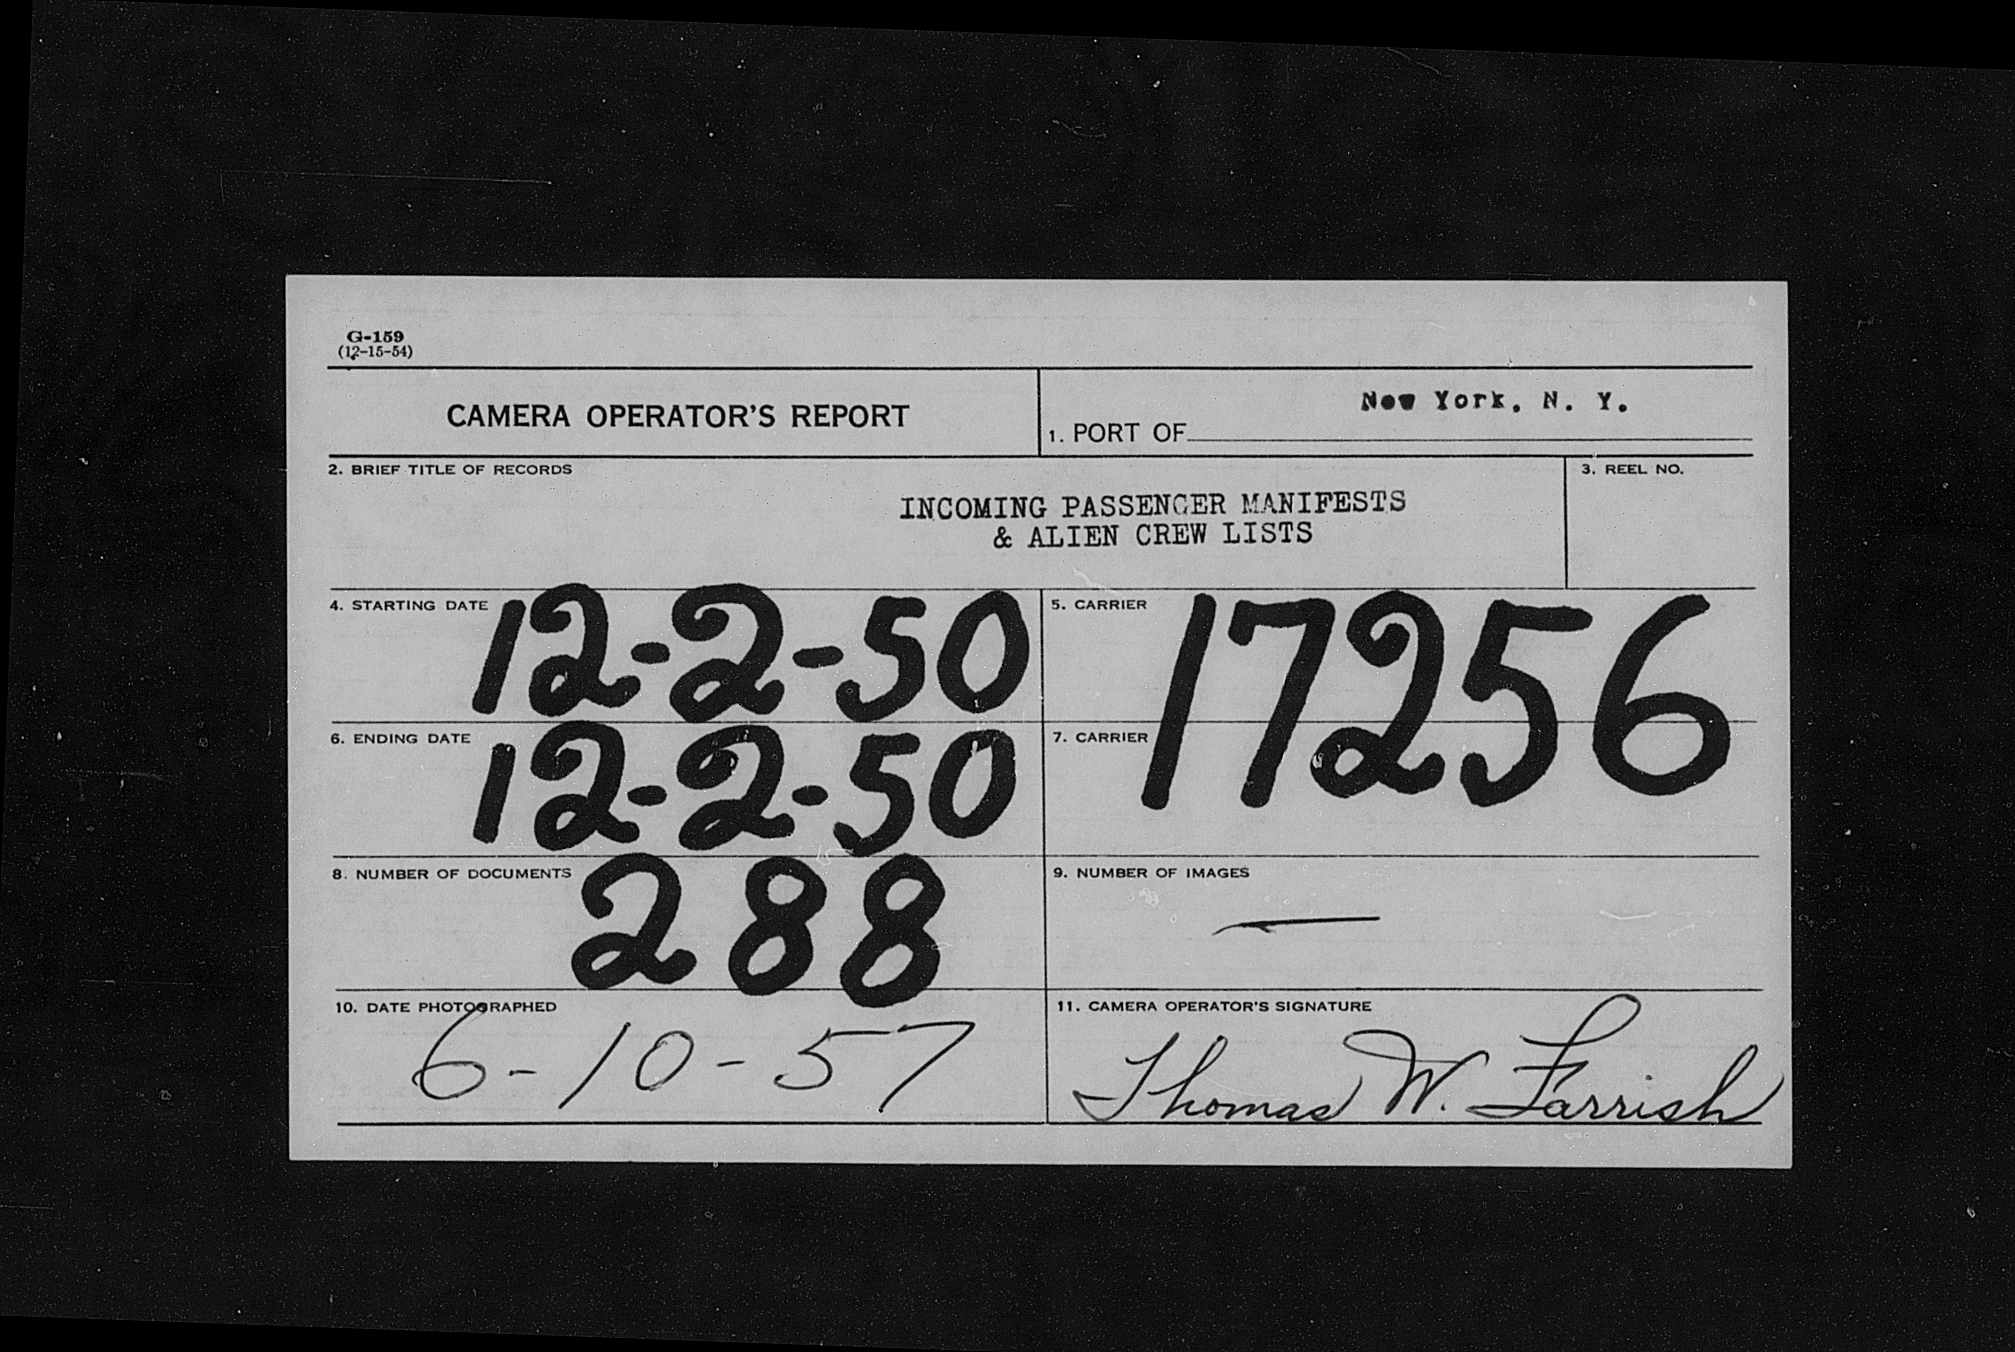 G-159
(12-15-54)
CAMERA OPERATOR'S REPORT
1. PORT OF New York, N. Y.
2. BRIEF TITLE OF RECORDS
INCOMING PASSENGER MANIFESTS
& ALIEN CREW LISTS
3. REEL NO.
4. STARTING DATE 12-2-50
5. CARRIER 17256
6. ENDING DATE 12-2-50
7. CARRIER
8. NUMBER OF DOCUMENTS 288
9. NUMBER OF IMAGES —
10. DATE PHOTOGRAPHED
6-10-57
11. CAMERA OPERATOR'S SIGNATURE
Thomas W. Farrish